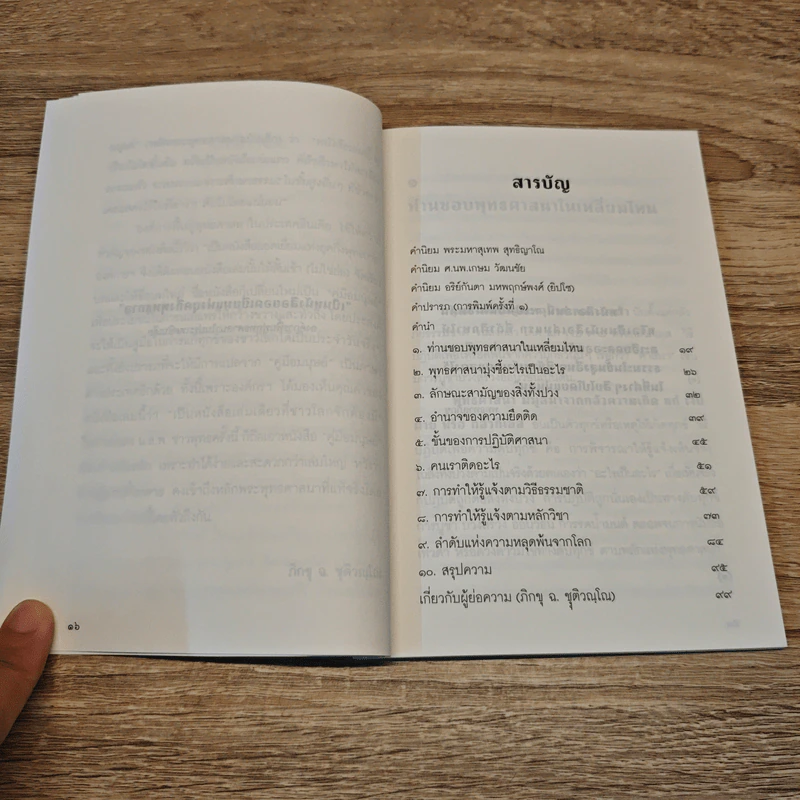 ๑๖
สารบัญ
คำนิยม พระมหาสุเทพ สุทธิญาโณ
คำนิยม ศ.นพ.เกษม วัฒนชัย
คำนิยม อริย์กันตา มหพฤกษ์พงศ์ (ยิปโซ)
คำปรารภ (การพิมพ์ครั้งที่ ๑)
คำนำ
๑. ท่านชอบพุทธศาสนาในเหลี่ยมไหน ๑๙
๒. พุทธศาสนามุ่งชี้อะไรเป็นอะไร ๒๖
๓. ลักษณะสามัญของสิ่งทั้งปวง ๓๒
๔. อำนาจของความยึดติด ๓๙
๕. ขั้นของการปฏิบัติศาสนา ๔๕
๖. คนเราติดอะไร ๕๑
๗. การทำให้รู้แจ้งตามวิธีธรรมชาติ ๕๙
๘. การทำให้รู้แจ้งตามหลักวิชา ๗๓
๙. ลำดับแห่งความหลุดพ้นจากโลก ๘๔
๑๐. สรุปความ ๙๕
เกี่ยวกับผู้ย่อความ (ภิกขุ ฉ. ชุติวณฺโณ) ๙๙